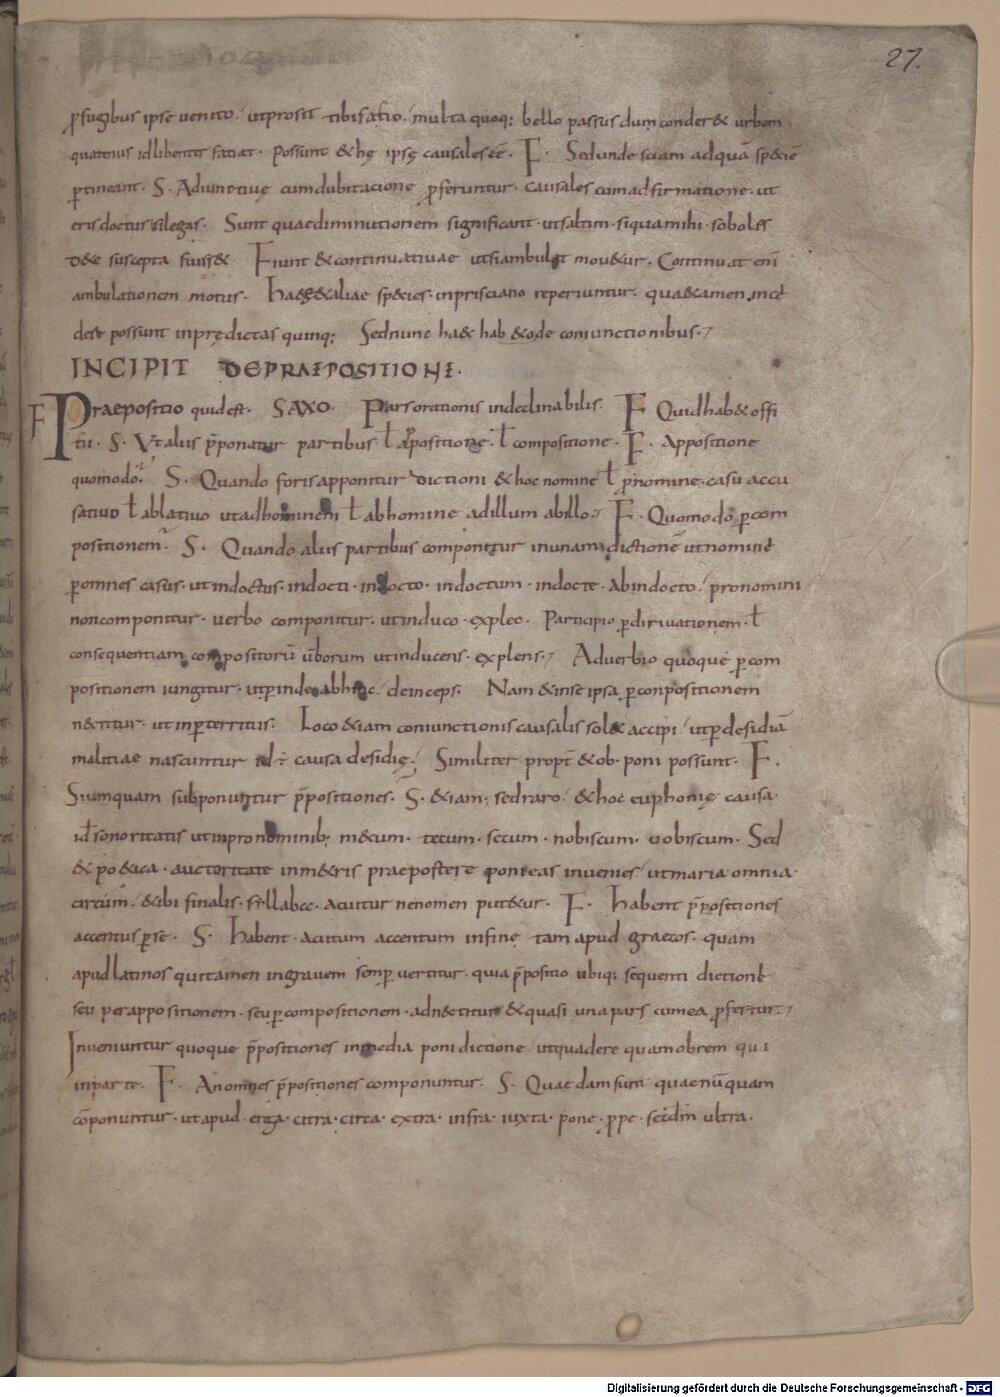 27.
ꝓfugibus ipse uenito. ut prosit tibi satio. multa quoq; bello passus dum conder& urbem
quatenus id libenter faciat. Possunt & hę ipsę causales eē. F. Sed unde sciam ad quā speciē
ꝑtineant. S. Adiunctiuę cum dubitacione ꝓferuntur. causales cum adfirmatione. ut
eris doctus si legas. Sunt quae diminutionem significant. ut saltim. si qua mihi soboles
de te suscepta fuiss&. Fiunt & continuatiuae ut si ambulat mou&ur. Continuat enī
ambulationem motus. Haec & aliae species in prisciano reperiuntur. quae tamen incē
dere possunt in prędictas quinq; Sed nunc haec hab&o de coniunctionibus.
INCIPIT DE PRAEPOSITIONE.
F Praepositio quid est. SAXO. Pars orationis indeclinabilis. F Quid hab& offi
tii. S. Vt aliis p̄ponatur partibus ł appositione. ł compositione. F. Appositione
quomodo. S. Quando foris apponitur dictioni & hoc nomine ł pronomine. casu accu
satiuo ł ablatiuo ut ad hominem ł ab homine ad illum ab illo. F. Quomodo ꝑ com
positionem. S. Quando aliis partibus componitur in unam dictionē ut nominē
ꝑ omnes casus. ut indoctus. indocti. indocto. indoctum. indocte. ab indocto. pronomini
non componitur. uerbo componitur. ut induco. expleo. Participio ꝑ diriuationem. ł
consequentiam compositorū uerborum ut inducens. explens. Aduerbio quoque ꝑ com
positionem iungitur. ut ꝑinde. abhinc. deinceps. Nam & in se ipsa ꝑ conpositionem
n&titur. ut inꝑterritus. Loco &iam coniunctionis causalis sol& accipi. ut ꝑ desidiā
malitiae nascuntur id ÷ causa desidię. Similiter propt̄ & ob. poni possunt. F.
Si umquam subponuntur p̄positiones. S. &iam. sed raro. & hoc euphonię causa.
id ē sonoritatis ut in pronominib; mecum. tecum. secum. nobiscum. uobiscum. Sed
& po&ica. auctoritate in m&ris praepostere poni eas inuenies ut maria omnia
circum. & ibi finalis. syllabae. acuitur ne nomen put&ur. F. Habent p̄positiones
accentus ꝑ se. S. Habent. acutum accentum in fine tam apud graecos. quam
apud latinos qui tamen in grauem semꝑ uertitur. quia p̄positio ubiq; sequenti dictioni
seu per appositionem. seu ꝑ compositionem. adn&titur & quasi una pars cum ea ꝓfertur.
Inueniuntur quoque p̄positiones in media poni dictione. ut quadere quamobrem qui
in parte. F. An omnes p̄positiones componuntur. S. Quaedam sunt quae nūquam
cōponuntur. ut apud. erga. citra. circa. extra. infra. iuxta. pone. ꝓpe. secdm ultra.
Digitalisierung gefördert durch die Deutsche Forschungsgemeinschaft - DFG